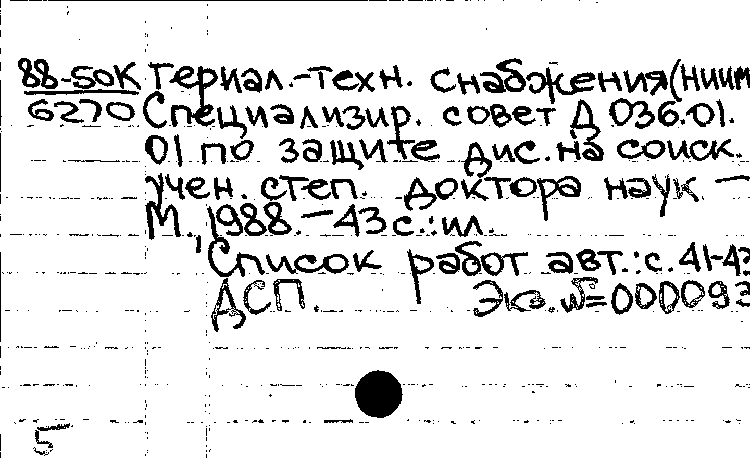 88-50К териал.-техн. снабжения(НИИМ
6270 Специализир. совет Д 036.01.
01 по защите дис. на соиск.
учен. степ. доктора наук —
М., 1988.—43 с.:ил.
Список работ авт.: с. 41-43
ДСП. Экз.№=000093
5